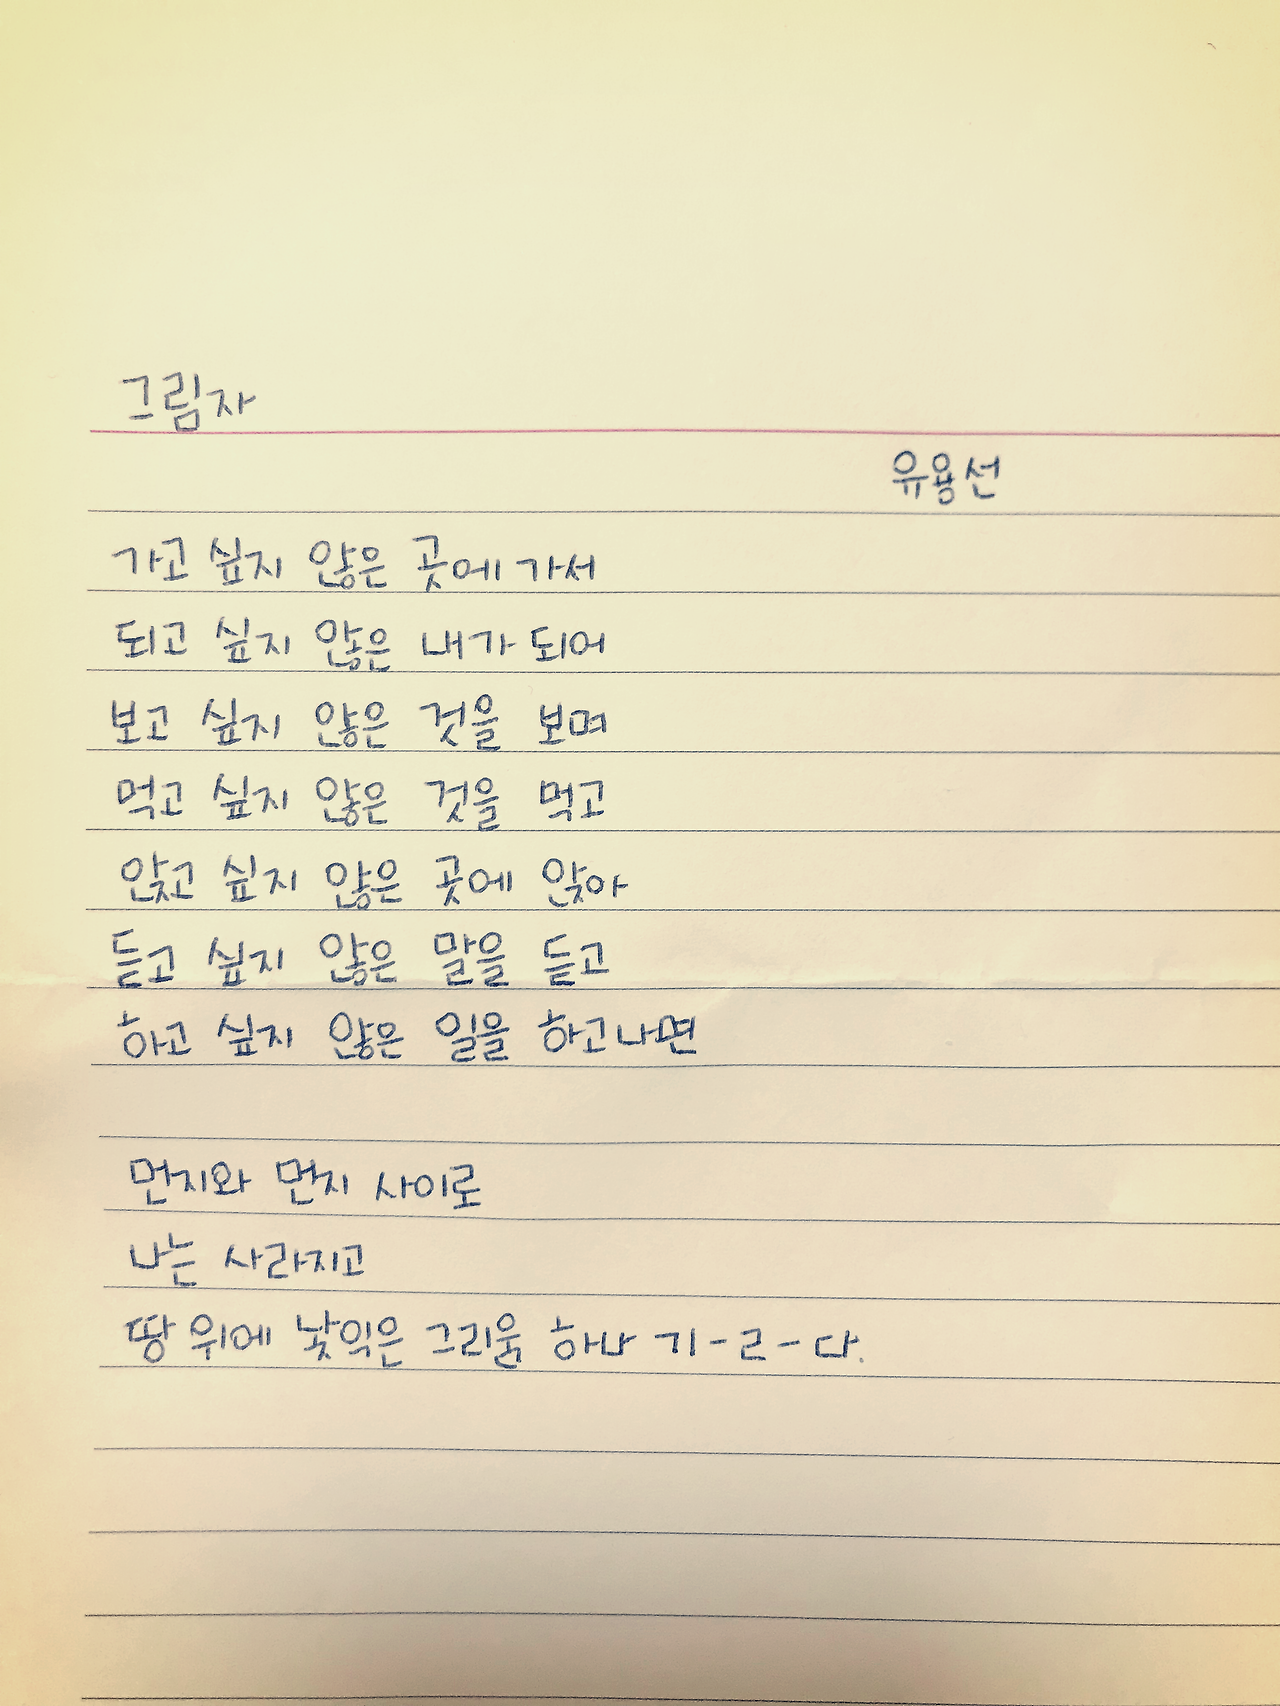 그림자
유용선
가고 싶지 않은 곳에 가서
되고 싶지 않은 내가 되어
보고 싶지 않은 것을 보며
먹고 싶지 않은 것을 먹고
앉고 싶지 않은 곳에 앉아
듣고 싶지 않은 말을 듣고
하고 싶지 않은 일을 하고나면
먼지와 먼지 사이로
나는 사라지고
땅 위에 낯익은 그리움 하나 기-르-다.